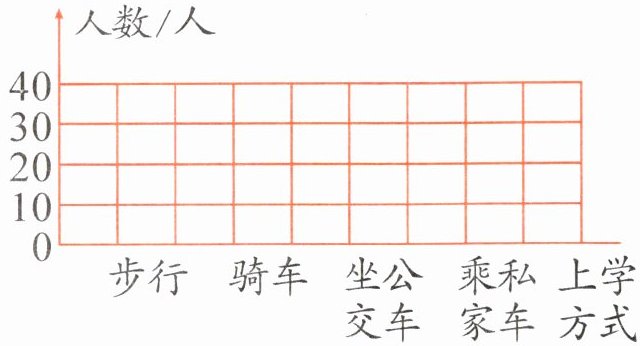 人数/人
40
30
20
10
0
步行 骑车 坐公交车 乘私家车 上学方式